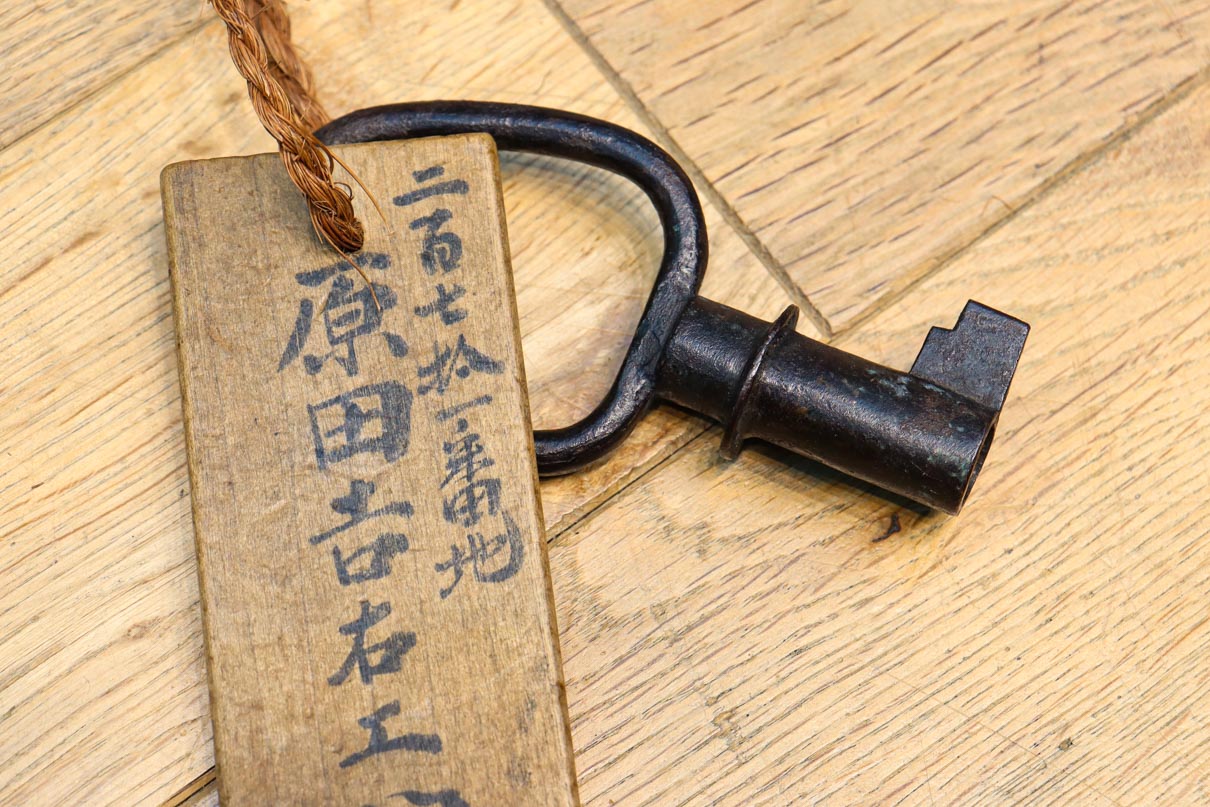 二百七拾一番地
原田吉右エ